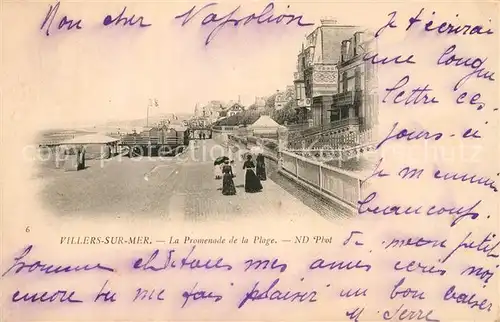 Mon cher Napolion
Je t'écrirai
une longue
lettre ces
jours-ci
je m'ennuie
beaucoup.
6
VILLERS-SUR-MER. — La Promenade de la Plage. — ND Phot
de mon petit
homme et tous mes amis
encore tu me fais plaisir un bon baiser
M. Serre